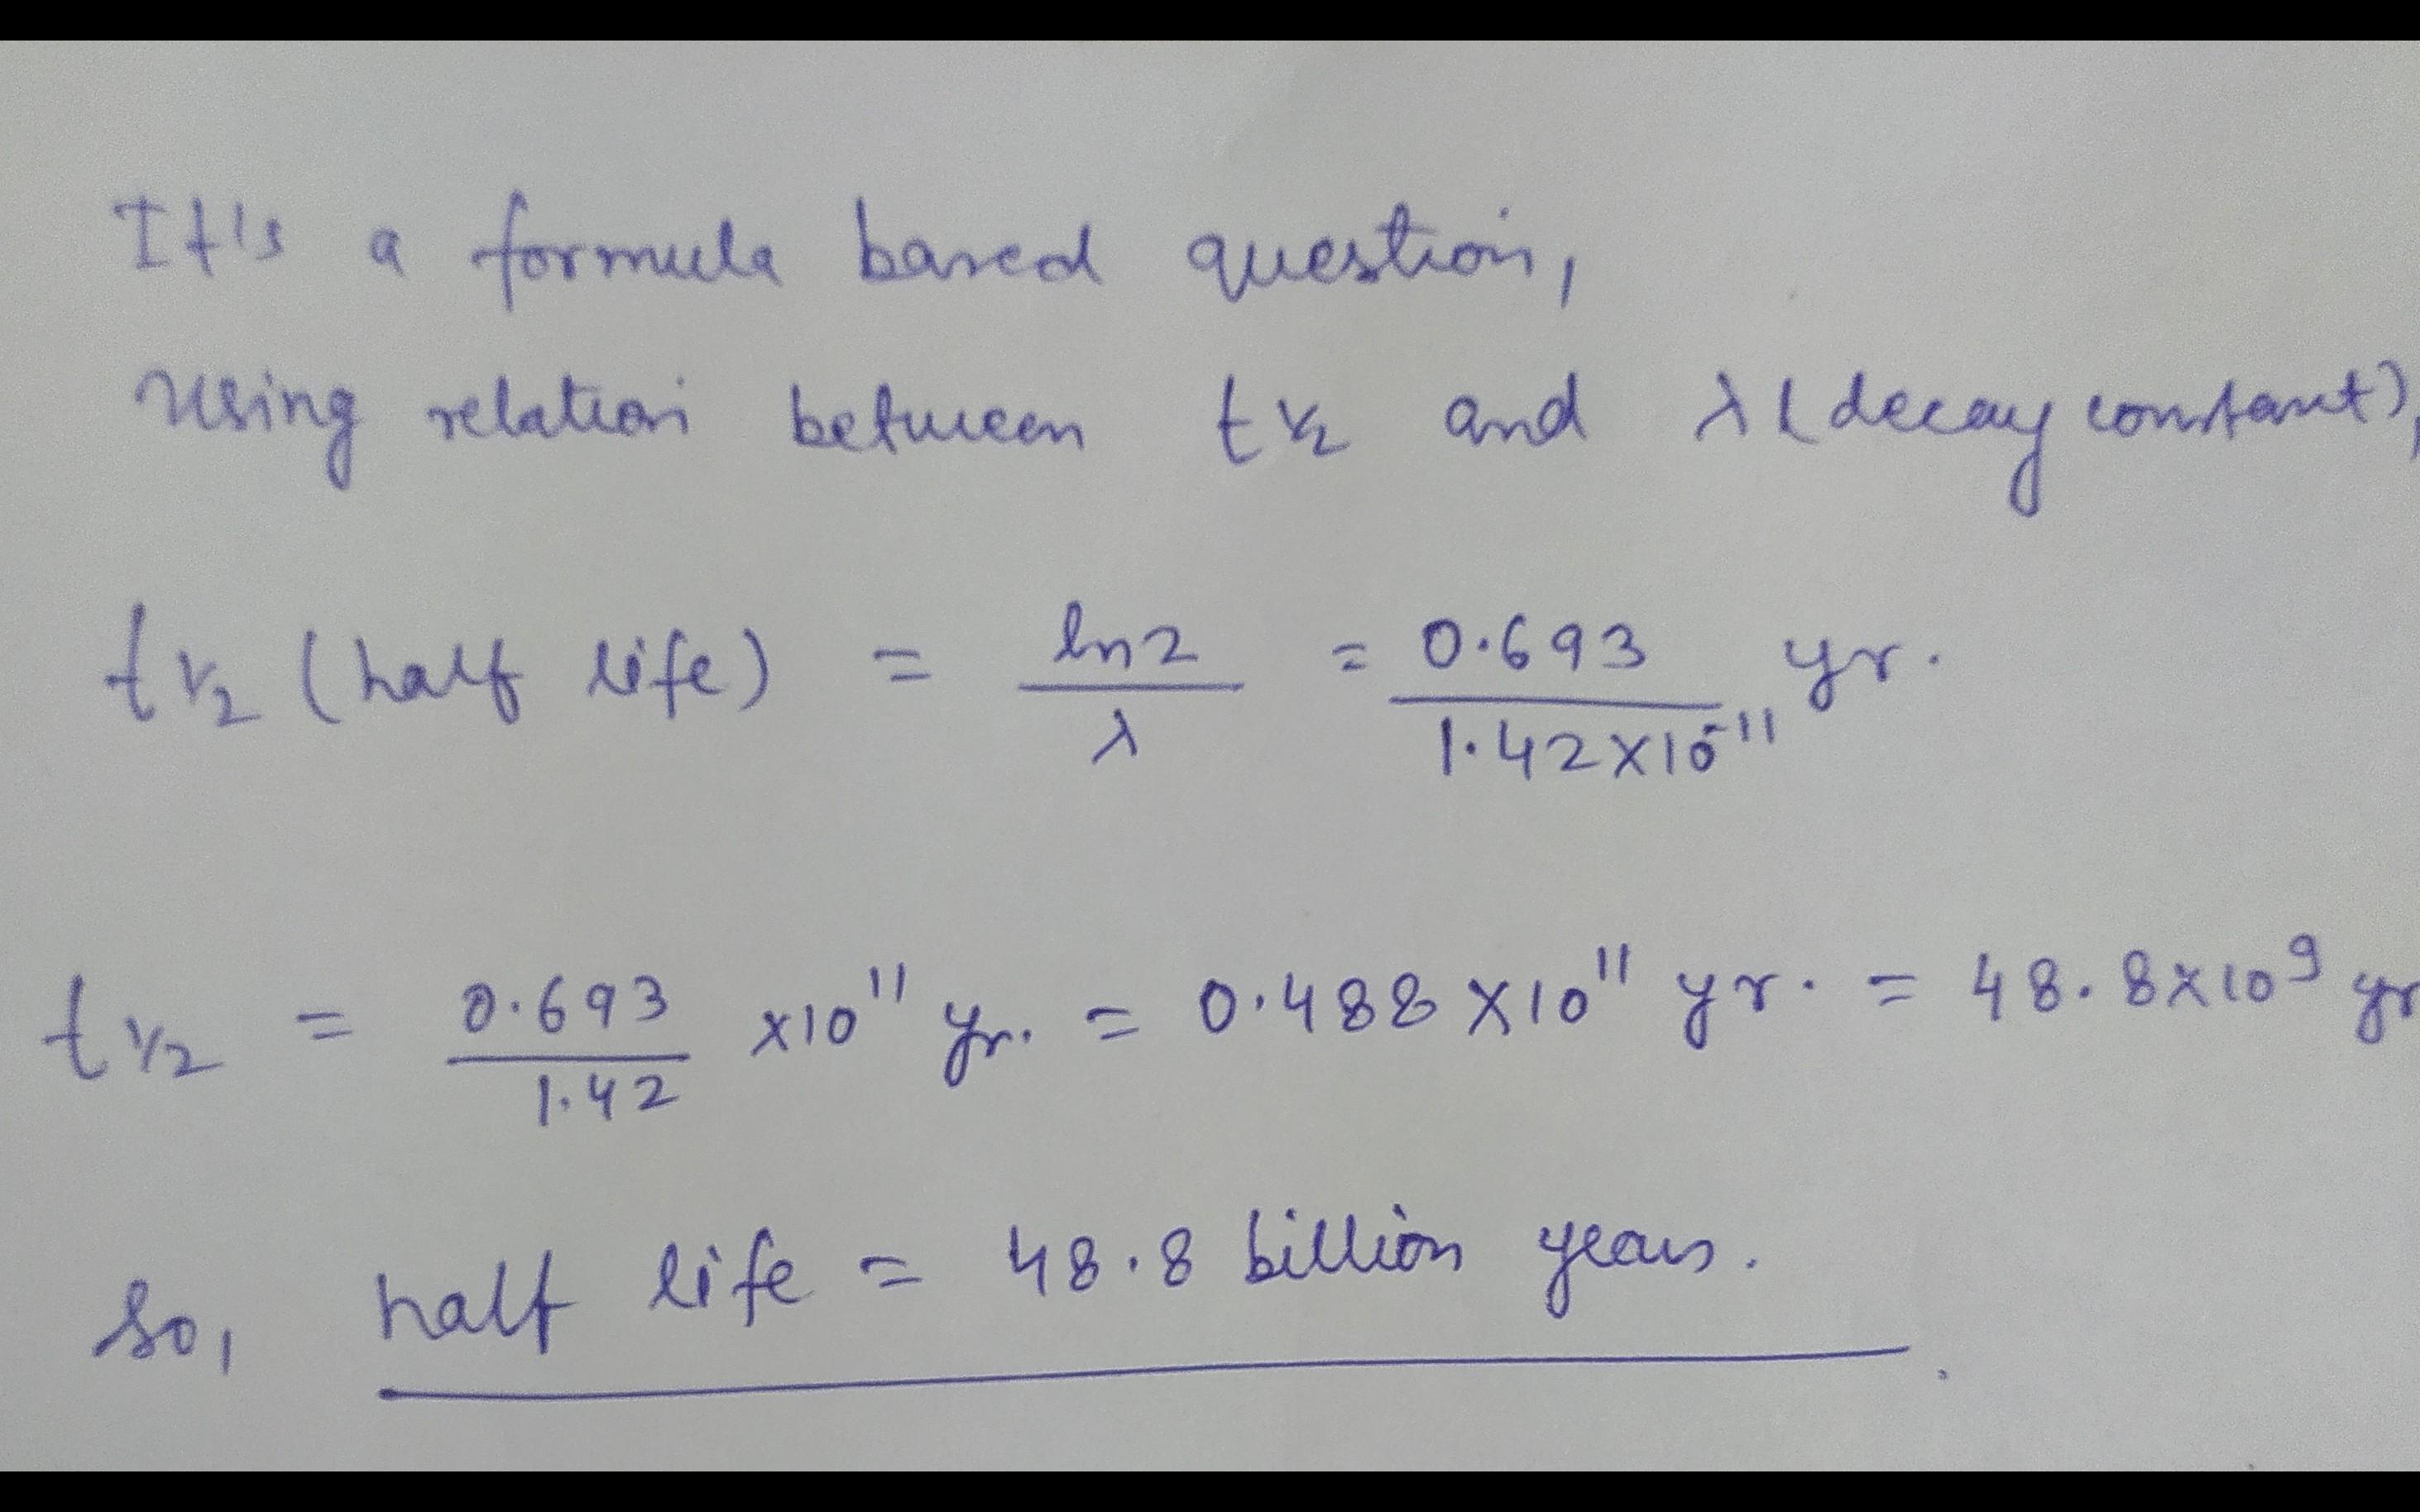 It's a formula based question,
using relation between t½ and λ (decay constant),
t½ (half life) = ln2/λ = 0.693/1.42×10⁻¹¹ yr.
t½ = 0.693/1.42 ×10¹¹ yr. = 0.488 ×10¹¹ yr. = 48.8×10⁹ yr
So, half life = 48.8 billion years.